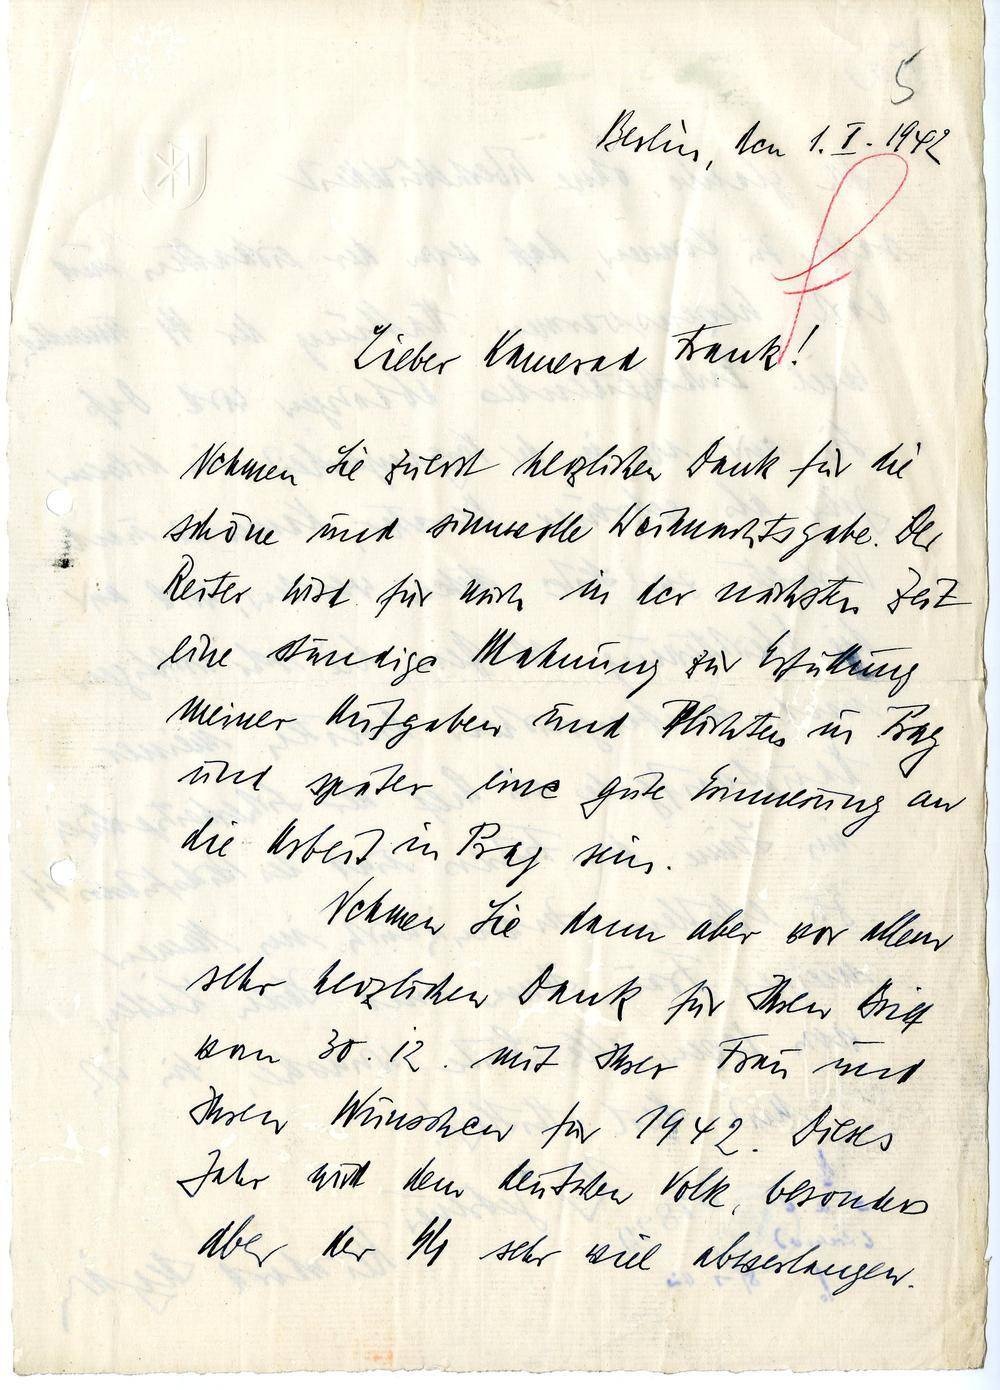 5
Berlin, den 1. I. 1942
Lieber Kamerad Frank!
Nehmen Sie zuerst herzlichen Dank für die
schöne und sinnvolle Weihnachtsgabe. Der
Reiter wird für mich in der nächsten Zeit
eine ständige Mahnung zur Erfüllung
meiner Aufgaben und Pflichten in Prag
und später eine gute Erinnerung an
die Arbeit in Prag sein.
Nehmen Sie dann aber vor allem
sehr herzlichen Dank für Ihren Brief
vom 30.12. mit Ihrer Frau und
Ihren Wünschen für 1942. Dieses
Jahr wird dem deutschen Volk, besonders
aber der SS sehr viel abverlangen.